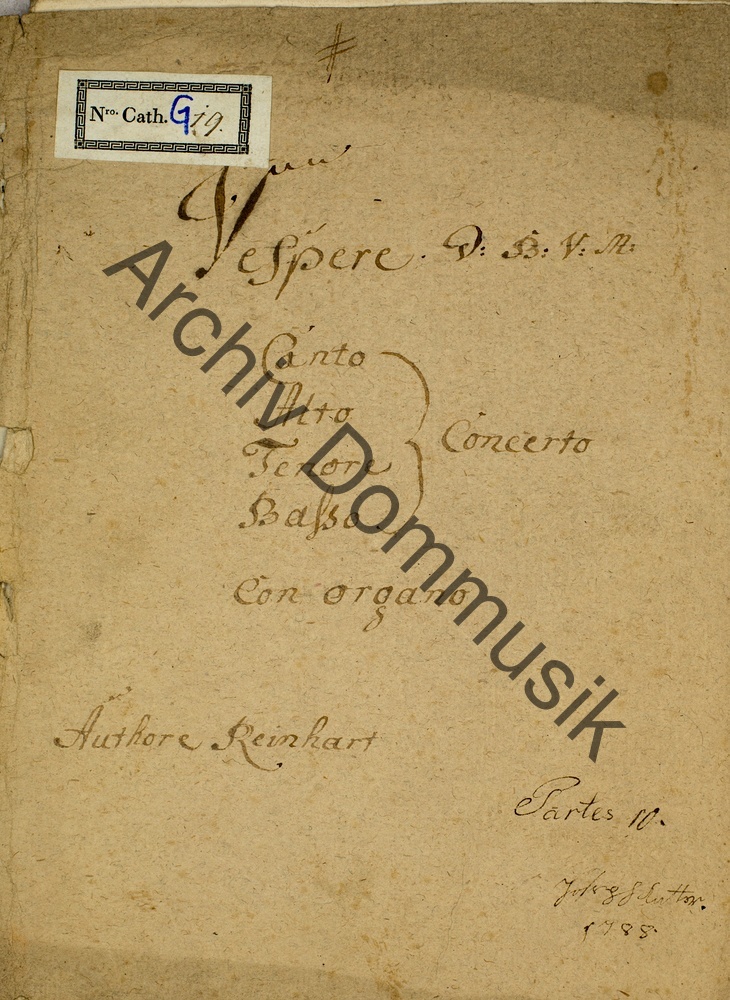 Nro. Cath. G 19.
Vespere. D: B: V: M:
Canto
Alto
Concerto
Tenore
Basso
Con organo
Authore Reinhart
Partes 10.
1788.
Archiv Dommusik